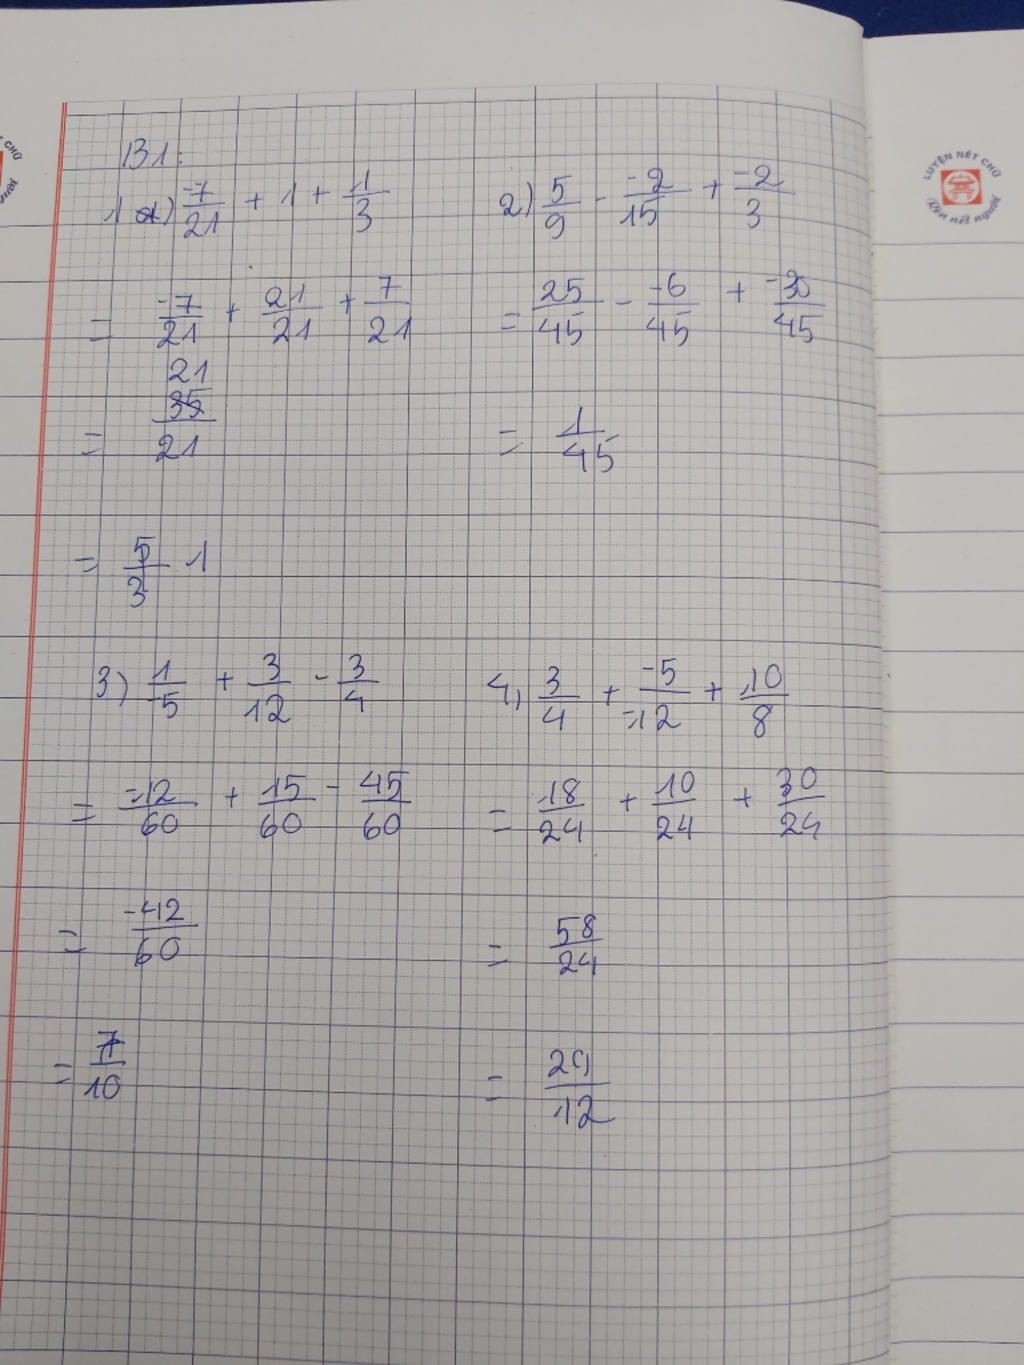 B1:
1 a) -7/21 + 1 + 1/3
= -7/21 + 21/21 + 7/21
21
= 35/21
= 5/3 1
2) 5/9 - -2/15 + -2/3
= 25/45 - -6/45 + -30/45
= 1/45
3) 1/-5 + 3/12 - 3/4
= -12/60 + 15/60 - 45/60
= -42/60
= 7/10
4, 3/4 + -5/-12 + 10/8
= 18/24 + 10/24 + 30/24
= 58/24
= 29/12
LUYỆN NÉT CHỮ
Rèn nết người